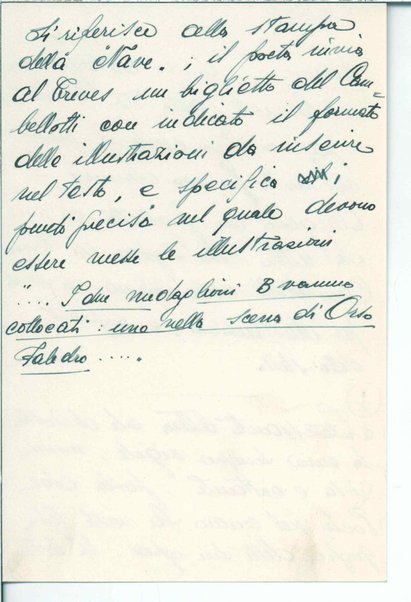 Si riferisce alla stampa
della "Nave"; il poeta invia
al Treves un biglietto del Cam=
bellotti con indicato il formato
delle illustrazioni da inserire
nel testo, e specifica i
punti precisi nel quale devono
essere messe le illustrazioni
".... I due medaglioni B vanno
collocati: uno nella scena di Orso
Faledro ....."